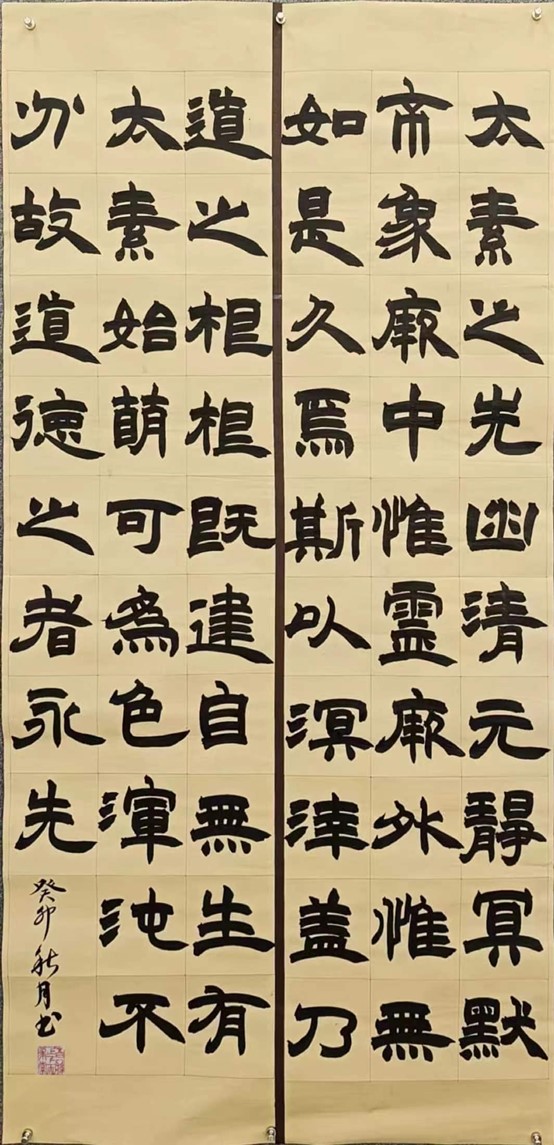 太素之先幽清元靜冥默
帝象厥中惟靈厥外惟無
如是久焉斯以溟涬盖乃
道之根根既建自無生有
太素始萌可為色渾沌不
分故道德之者永先
癸卯秋月书